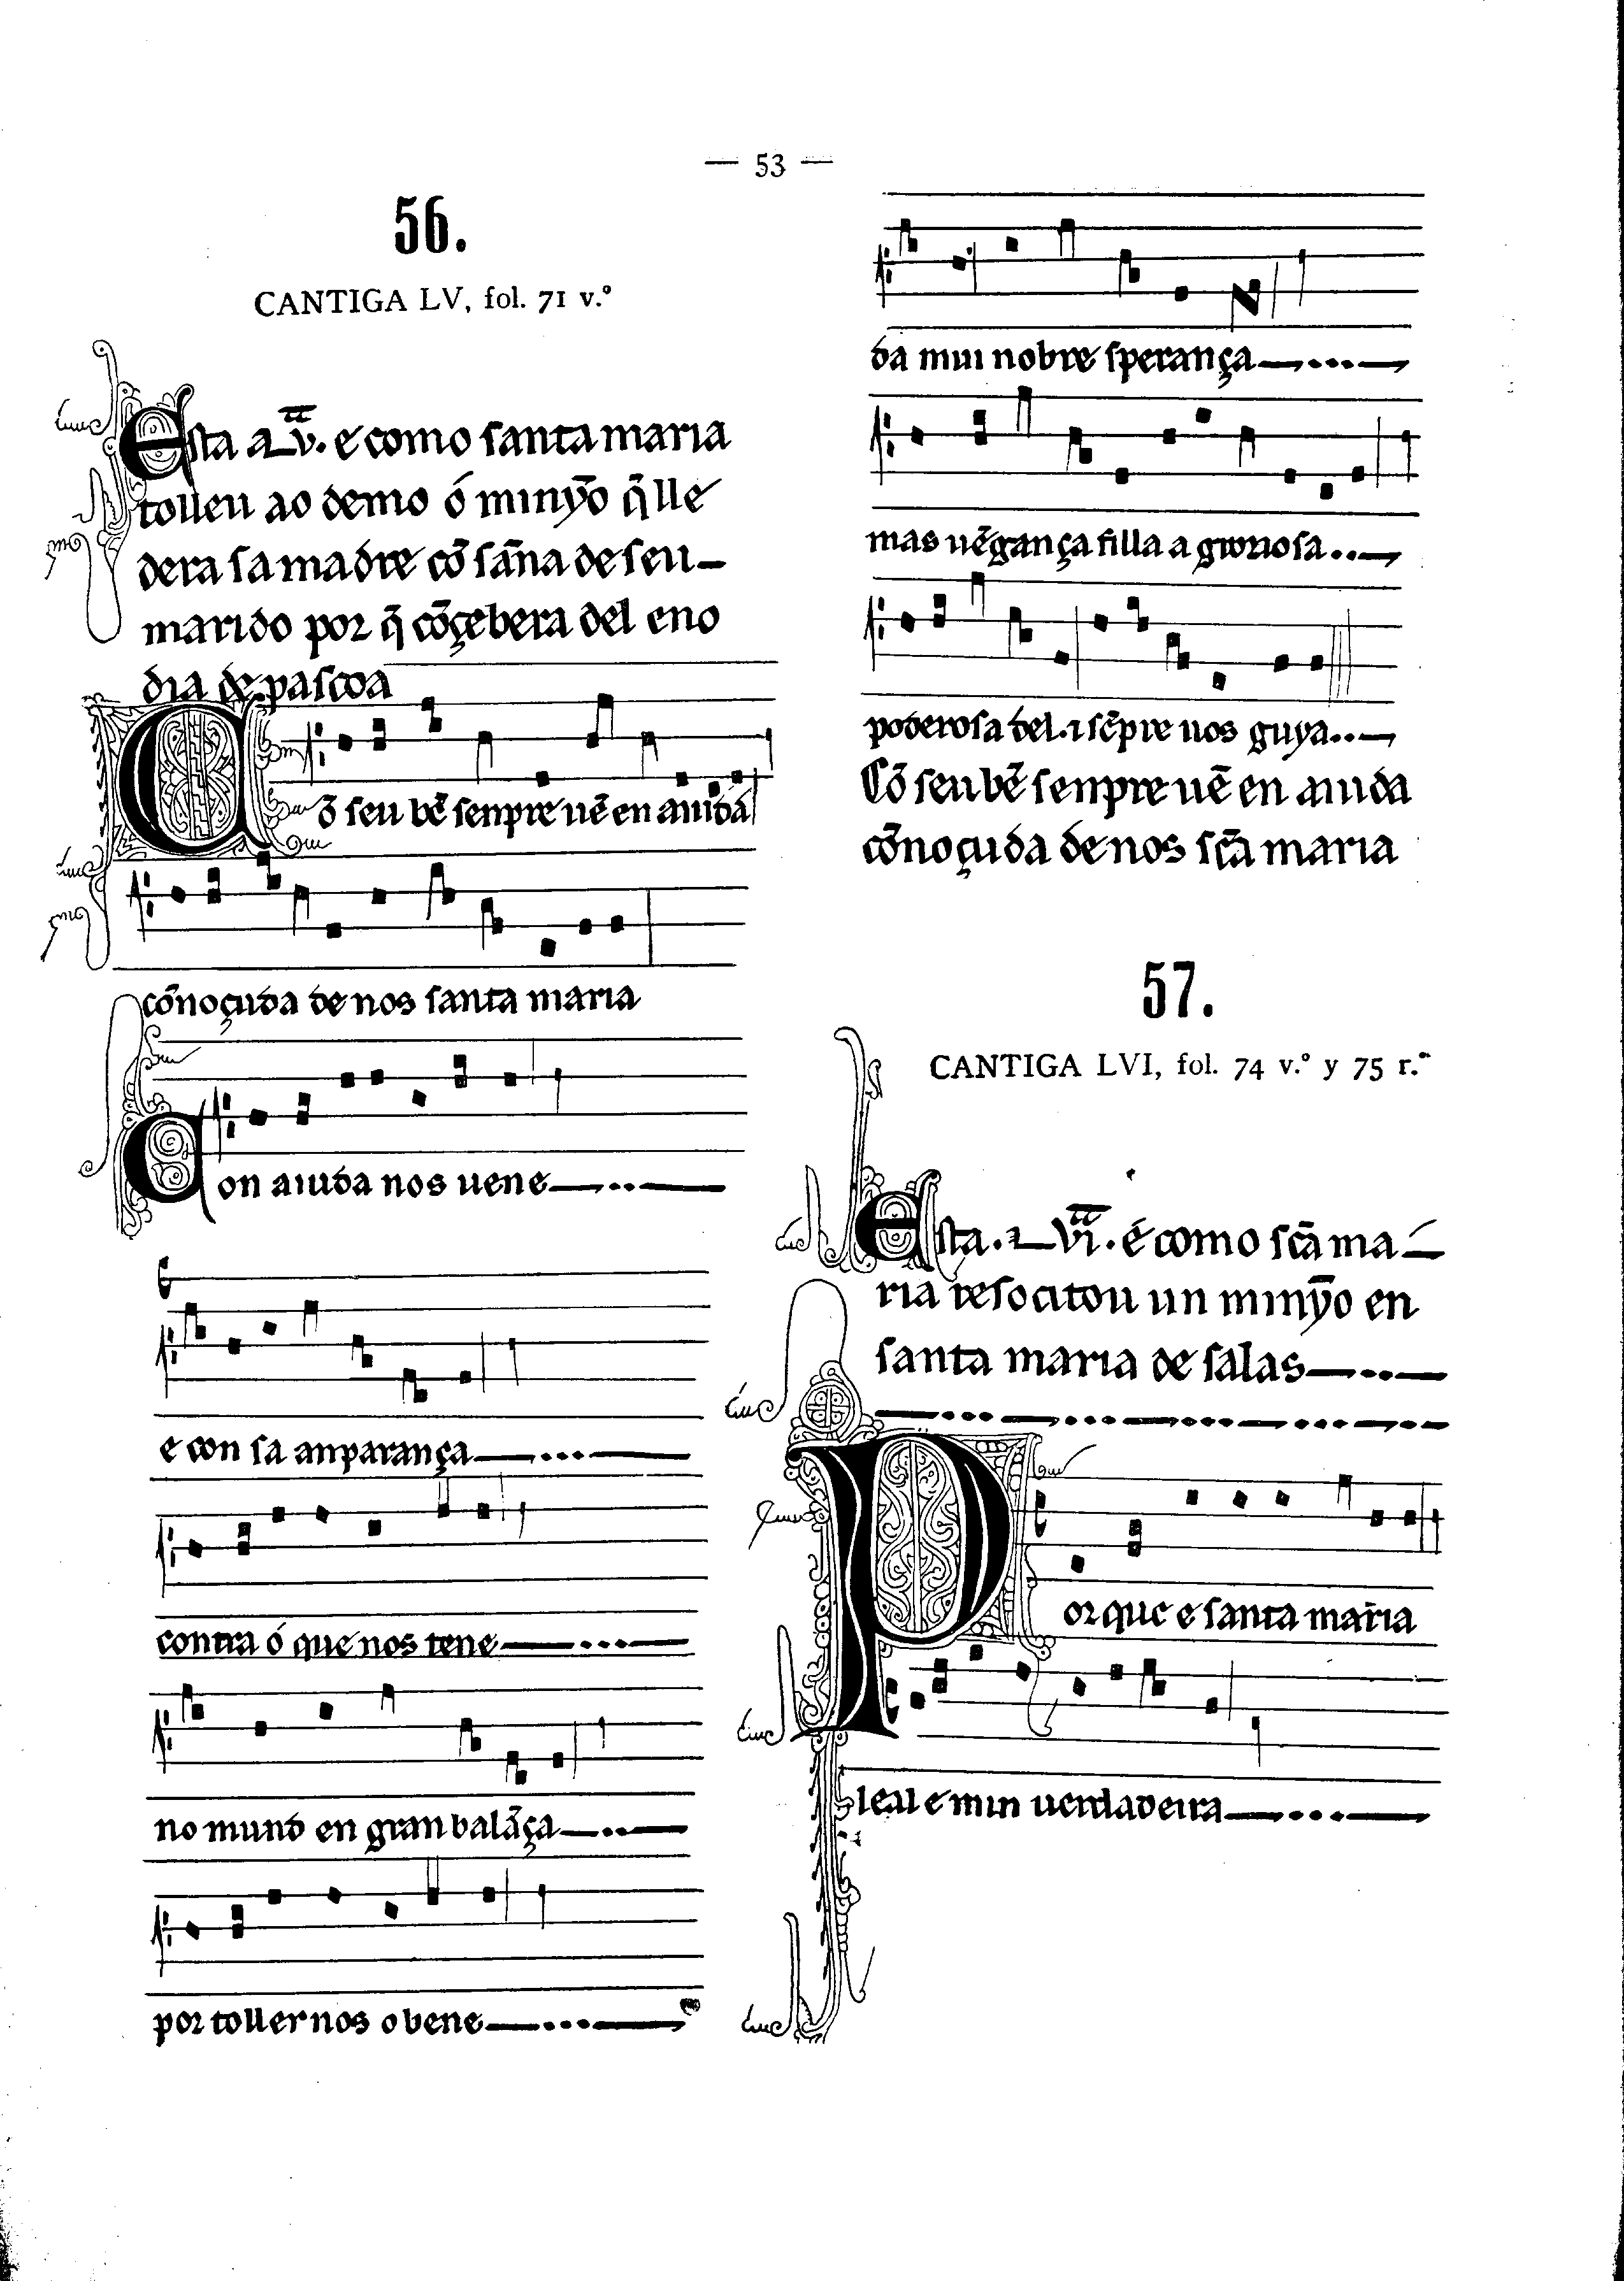 — 53 —
56.
CANTIGA LV, fol. 71 v.º
Esta a L v̄. e como santa maria
tolleu ao demo ó minȳo q̄ lle
dera sa madre cō sāna de seu—
marido por q̄ cōçebera del eno
dia de pascoa
Cō seu bē senpre uē en aiudā
cōnoçuda de nos santa maria
Con aiuda nos uene
e con sa anparança
contra ó que nos tene
no mund en gran balāça
por toller nos o bene
da mui nobre sperança
mas uēgança filla a gloriosa
poderosa del. ⁊ sēpre nos guya
Cō seu bē senpre uē en aiuda
cōnoçuda de nos sc̄a maria
57.
CANTIGA LVI, fol. 74 v.º y 75 r.º
Esta. L vī. é como sc̄a ma—
ria resocitou un minȳo en
santa maria de salas
Por que e santa maria
leal e mui uerdadeira